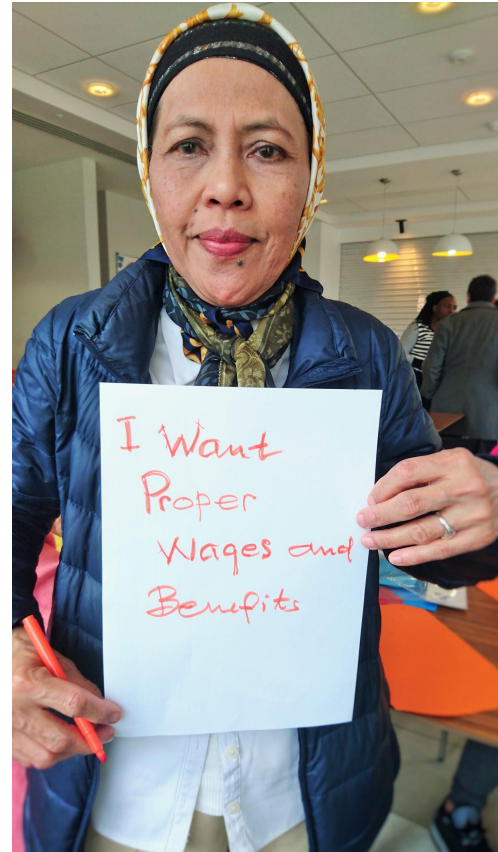 I Want
Proper
Wages and
Benefits